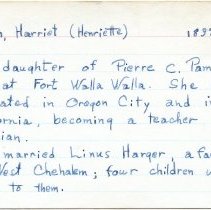 n, Harriet (Henriette) 183
daughter of Pierre C. Pam
at Fort Walla Walla. She
ated in Oregon City and i
fornia, becoming a teacher
ian.
married Linus Harger, a fa
West Chehalem; four children w
to them.